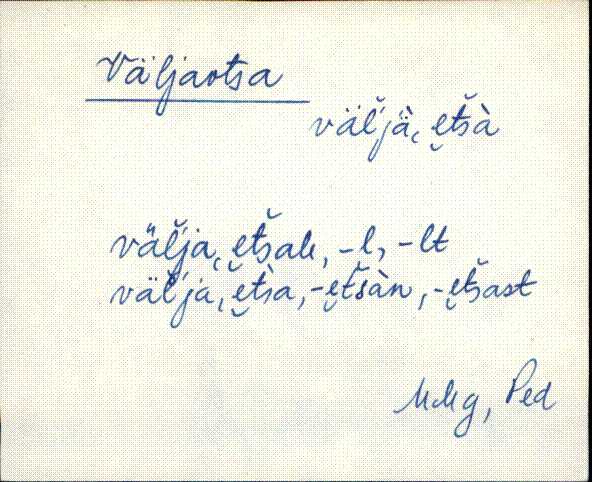 Väljaotsa
väľjä, e̮t̆sà
väľja, e̮t̆salı, -l, -lt
väľja, e̮t̆sa, -e̮t̆sàn, -e̮t̆sast
MMg, Ped